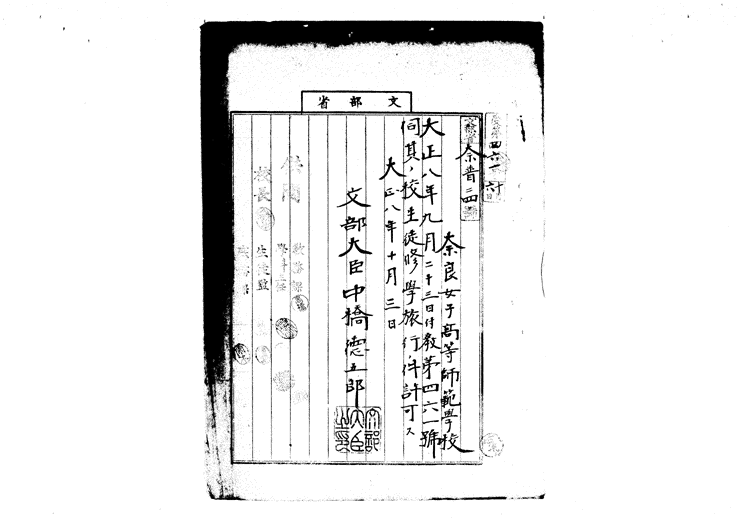 文部省
四六一
奈普二四
奈良女子高等師範學校
大正八年九月二十三日付教第四六一號
伺其ノ校生徒修學旅行ノ件許可ス
大正八年十月三日
文部大臣中橋德五郎
文部大臣之印
校長
生徒監